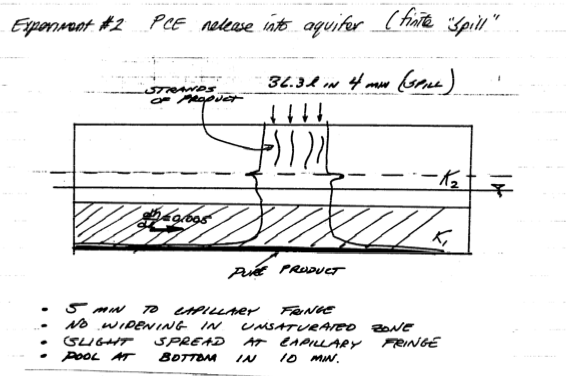 Experiment #2 PCE release into aquifer (finite "spill"
36.3 l IN 4 MIN (SPILL)
STRANDS
OF PRODUCT
K2
dh/dl = 0.005
K1
PURE PRODUCT
• 5 MIN TO CAPILLARY FRINGE
• NO WIDENING IN UNSATURATED ZONE
• (SLIGHT SPREAD AT CAPILLARY FRINGE
• POOL AT BOTTOM IN 10 MIN.